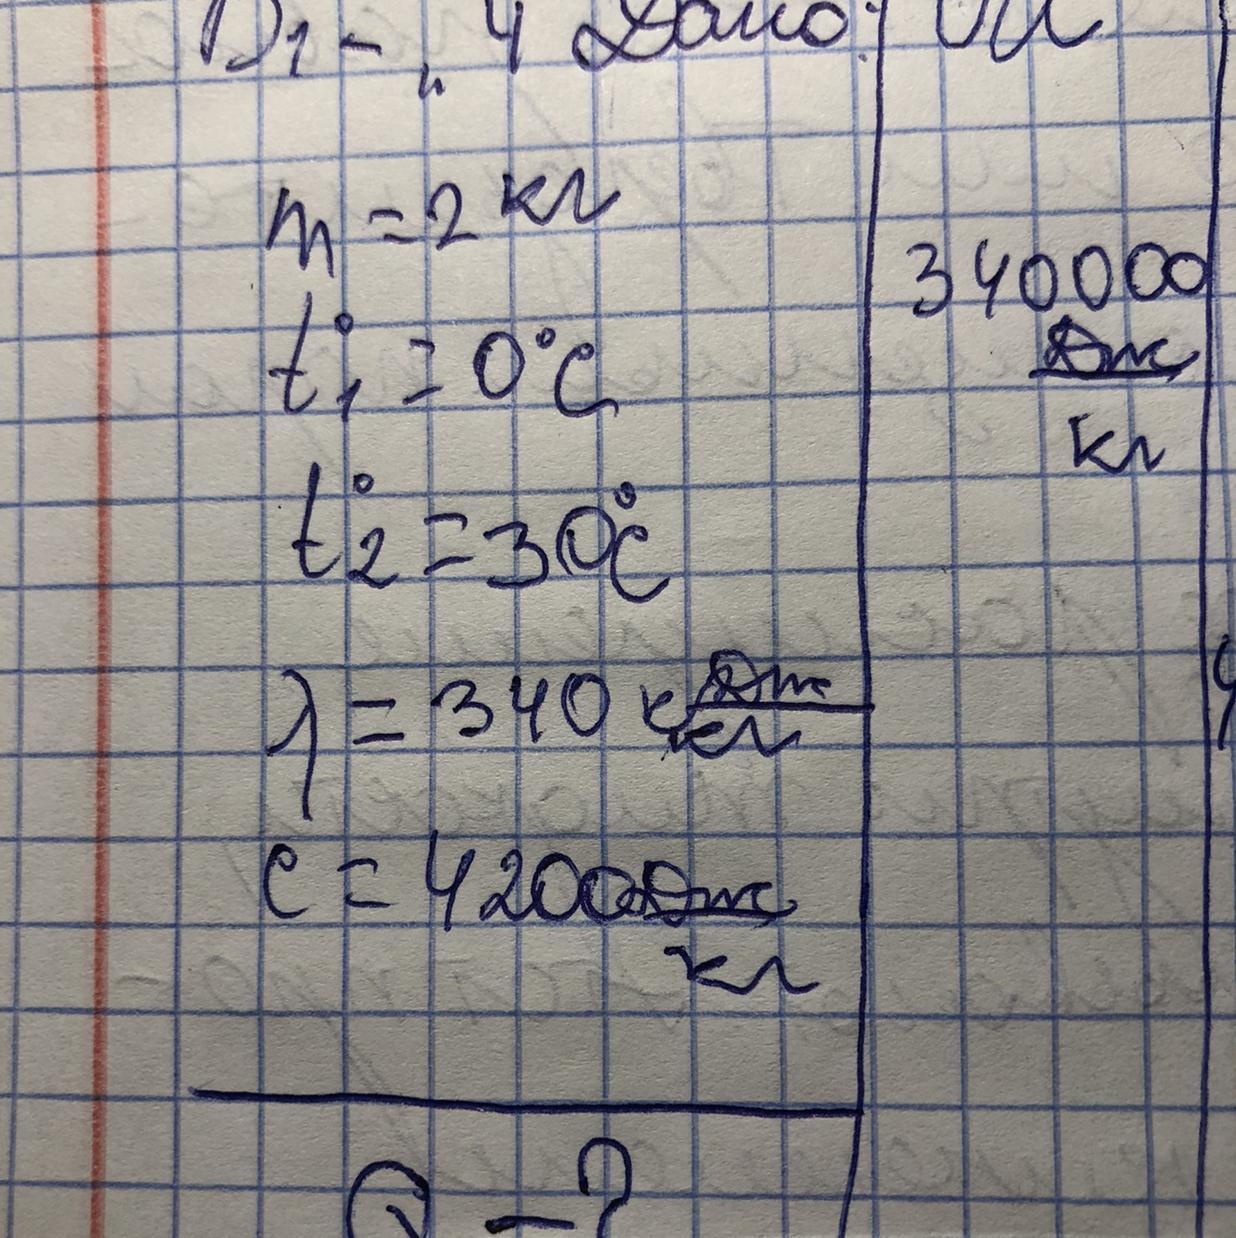 Дано: СИ
m = 2 кг
t°₁ = 0°C
t°₂ = 30°C
λ = 340 кДж/кг
c = 4200 Дж/кг
Q – ?
340000
Дж/кг